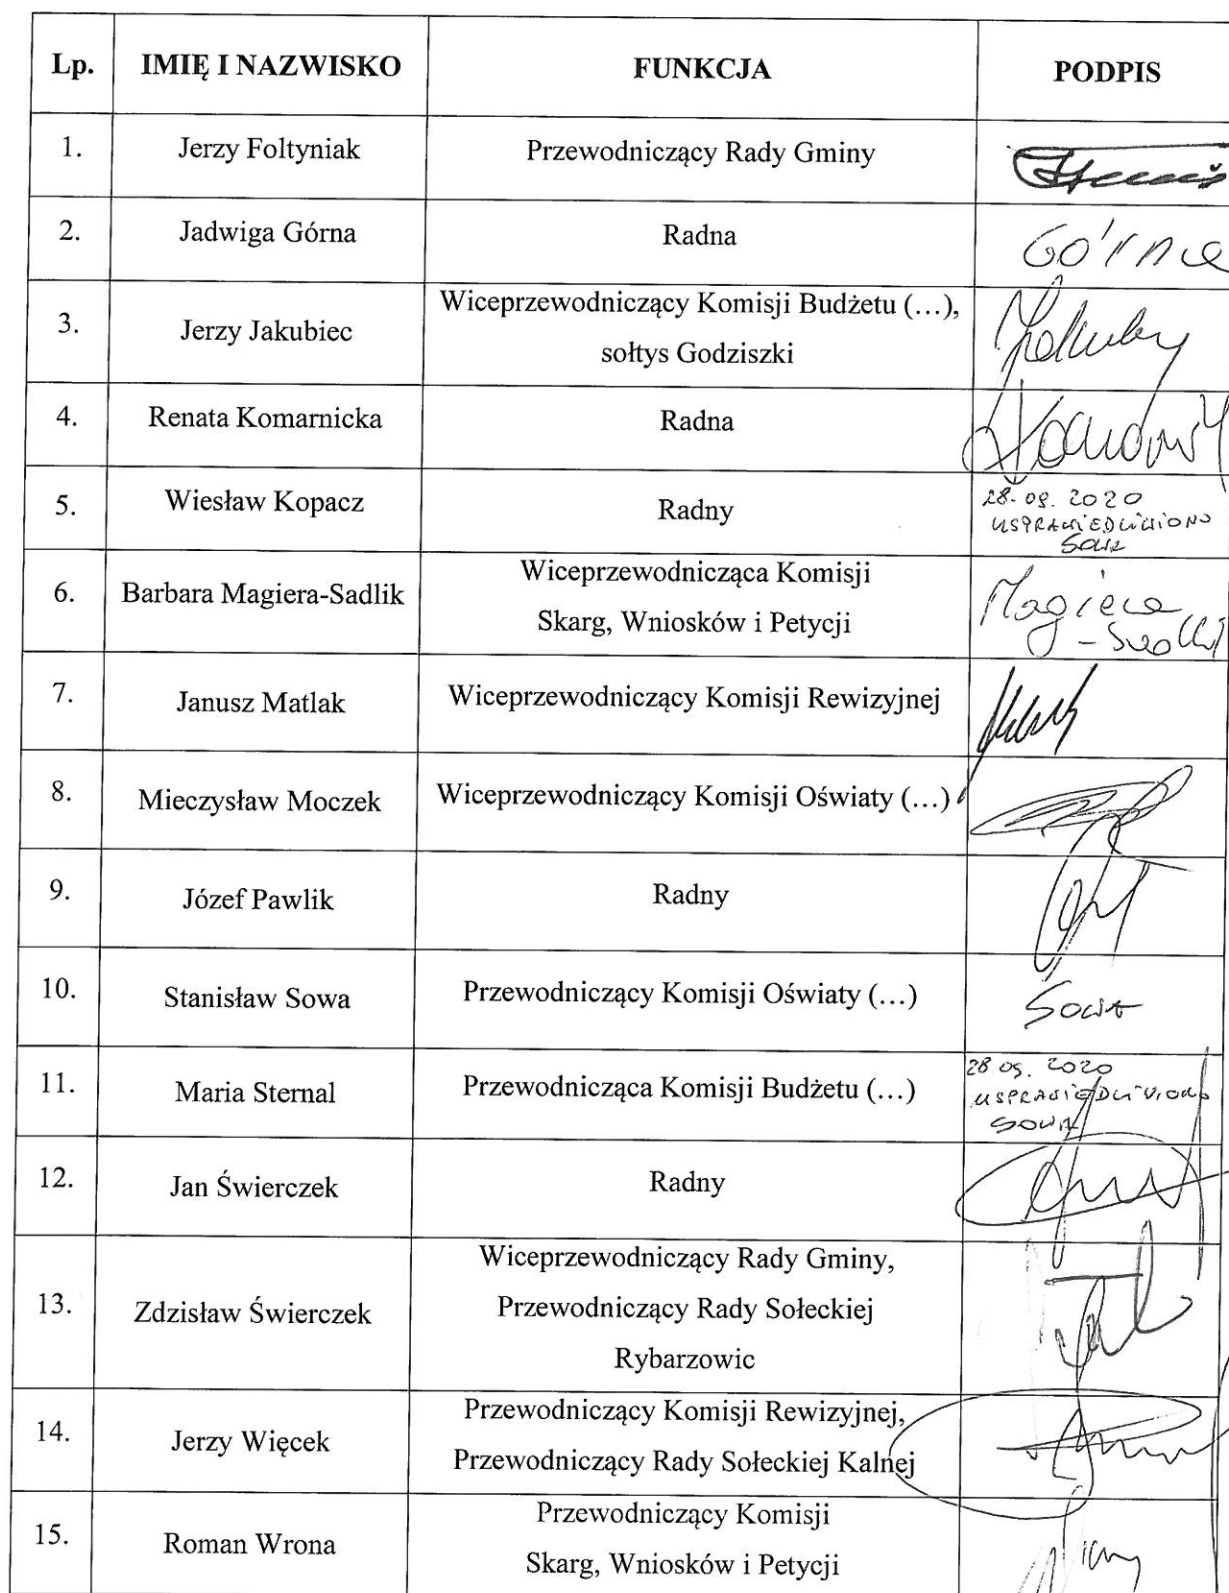 Lp. IMIĘ I NAZWISKO FUNKCJA PODPIS
1. Jerzy Foltyniak Przewodniczący Rady Gminy
2. Jadwiga Górna Radna Górna
3. Jerzy Jakubiec Wiceprzewodniczący Komisji Budżetu (…),
sołtys Godziszki
4. Renata Komarnicka Radna
5. Wiesław Kopacz Radny 28.09.2020
USPRAWIEDLIWIONO
SOWA
6. Barbara Magiera-Sadlik Wiceprzewodnicząca Komisji
Skarg, Wniosków i Petycji Magiera
-Sadlik
7. Janusz Matlak Wiceprzewodniczący Komisji Rewizyjnej
8. Mieczysław Moczek Wiceprzewodniczący Komisji Oświaty (…)
9. Józef Pawlik Radny
10. Stanisław Sowa Przewodniczący Komisji Oświaty (…) Sowa
11. Maria Sternal Przewodnicząca Komisji Budżetu (…) 28 09. 2020
USPRAWIEDLIWIONO
SOWA
12. Jan Świerczek Radny
13. Zdzisław Świerczek Wiceprzewodniczący Rady Gminy,
Przewodniczący Rady Sołeckiej
Rybarzowic
14. Jerzy Więcek Przewodniczący Komisji Rewizyjnej,
Przewodniczący Rady Sołeckiej Kalnej
15. Roman Wrona Przewodniczący Komisji
Skarg, Wniosków i Petycji